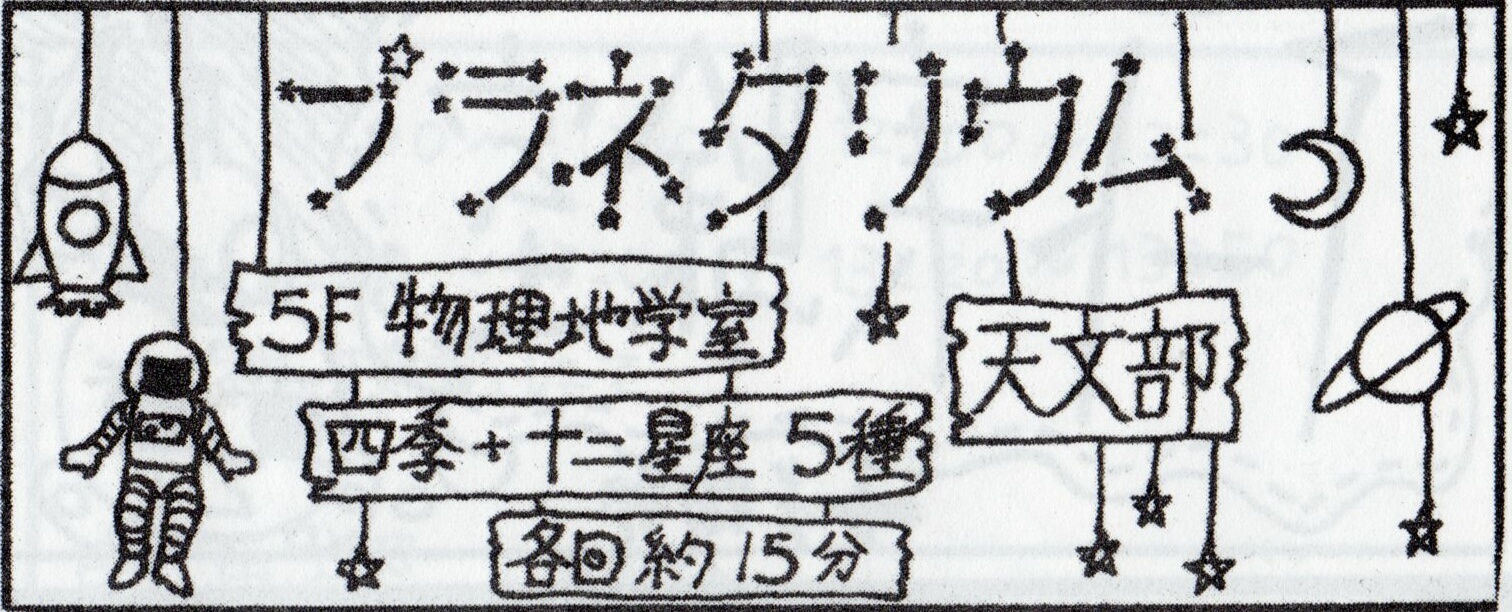 プラネタリウム
5F 物理地学室
天文部
四季+十二星座 5種
各回約15分